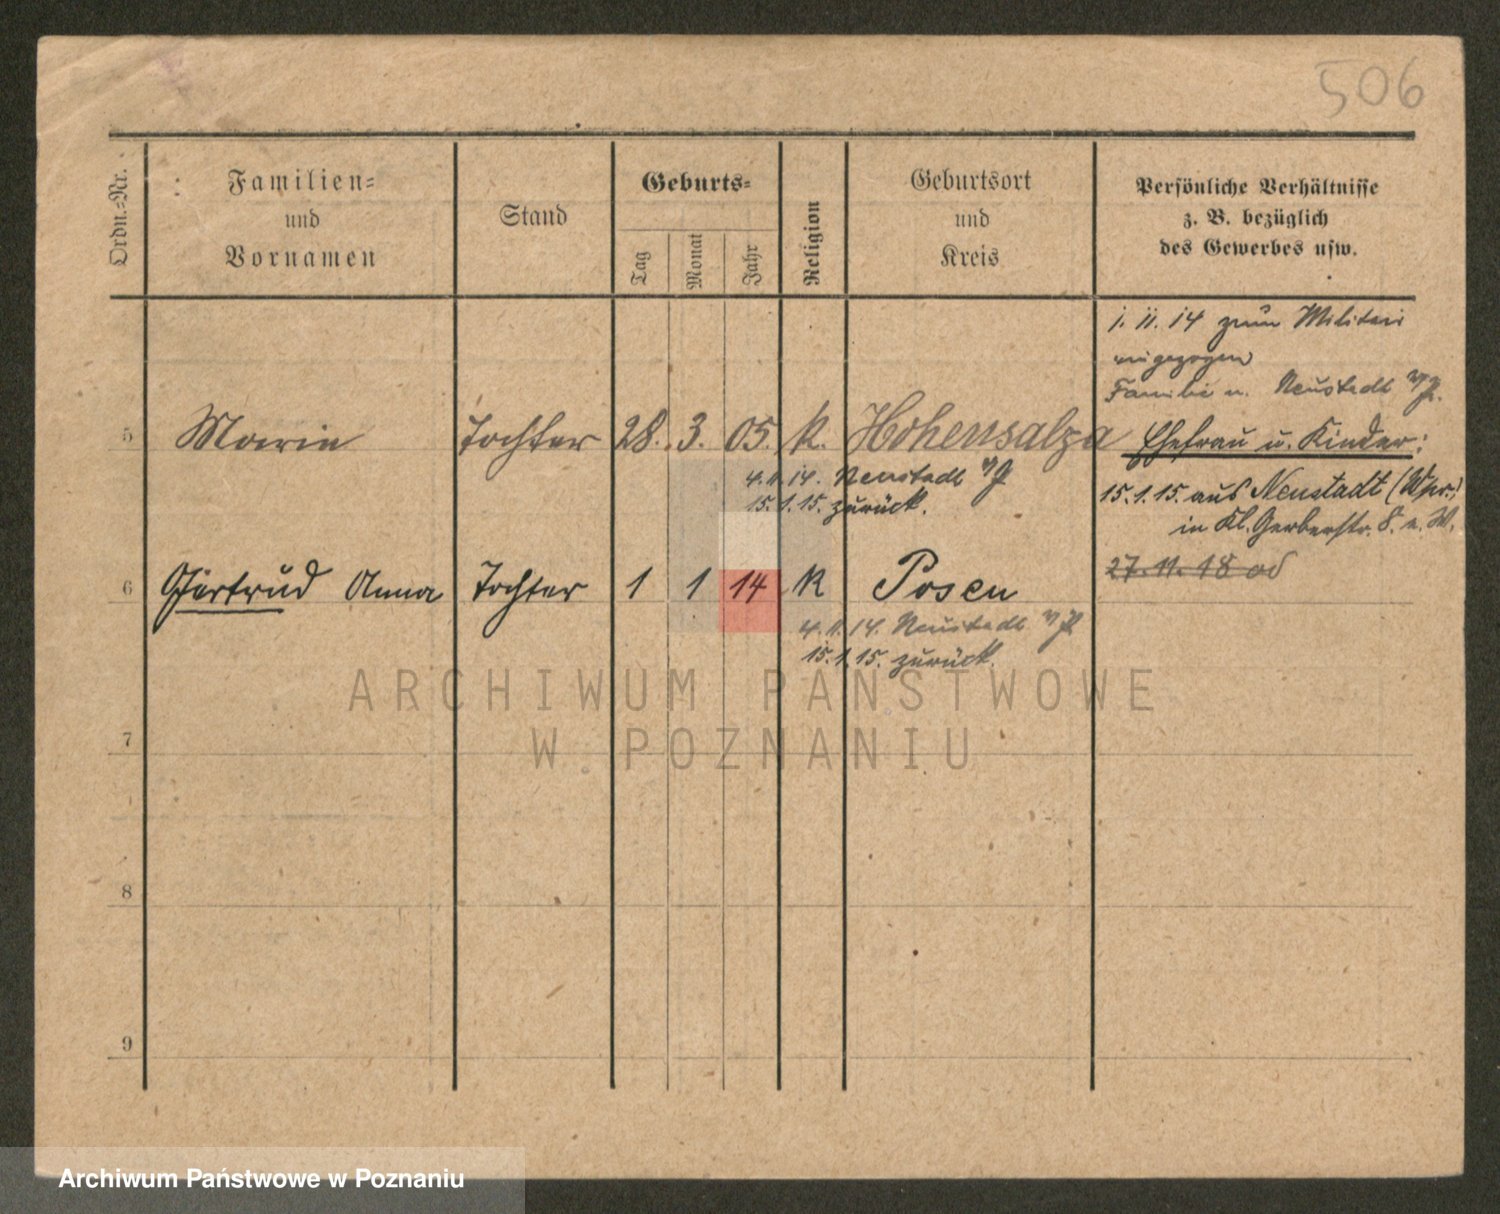 506
Ordn.-Nr.
Familien-
und
Vornamen
Stand
Geburts-
Tag
Monat
Jahr
Religion
Geburtsort
und
Kreis
Persönliche Verhältnisse
z. B. bezüglich
des Gewerbes usw.
1. 11. 14 zum Militär
eingezogen
Familie n. Neustadt
5 Marie Tochter 28. 3. 05. k. Hohensalza
Ehefrau u. Kinder:
4. 11. 14. Neustadt
15. 1. 15. zurück.
15. 1. 15. aus Neustadt (Wpr.)
in Kl. Gerberstr. 8. z. W.
27. 11. 18 od
6 Gertrud Anna Tochter 1 1 14 k Posen
4. 11. 14. Neustadt
15. 1. 15. zurück.
ARCHIWUM PAŃSTWOWE
W POZNANIU
7
8
9
Archiwum Państwowe w Poznaniu